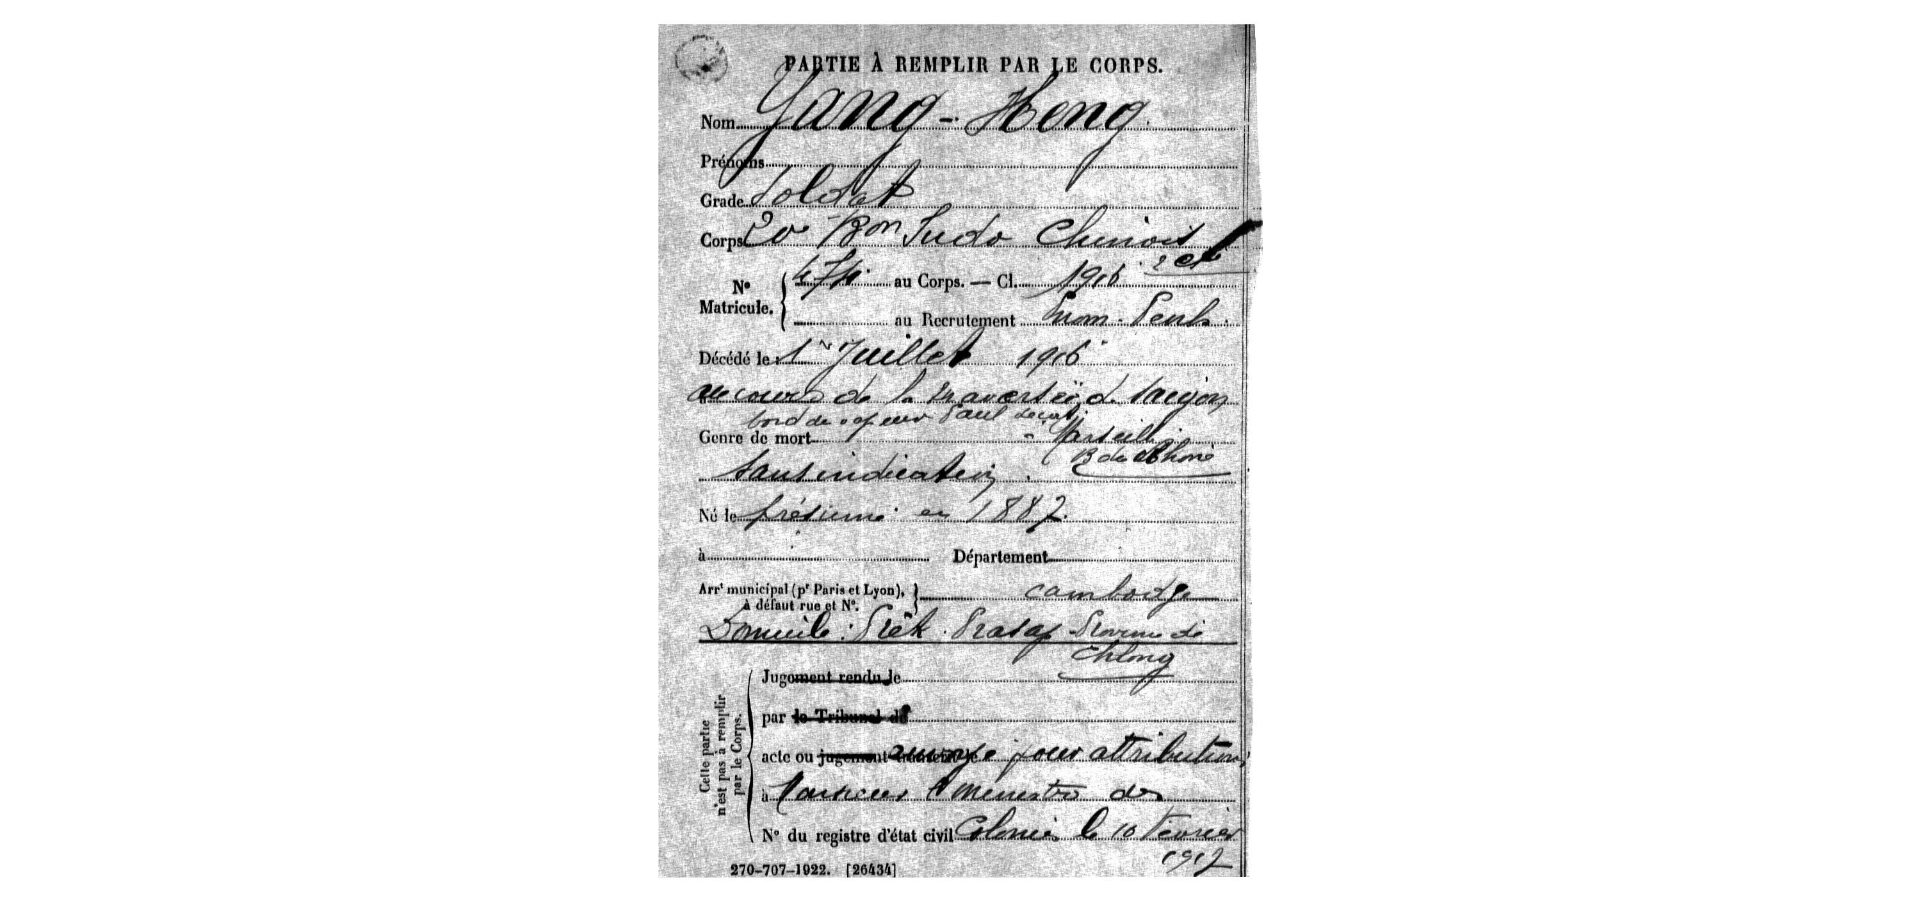 PARTIE À REMPLIR PAR LE CORPS.
Nom Yang - Heng
Prénoms
Grade Soldat
Corps 20 Bon Indo Chinois
2 cl
N° Matricule. { 474 au Corps. — Cl. 1916
au Recrutement Pnom-Penh.
Décédé le 1er Juillet 1916
au cours de la traversée de Saigon
bord du vapeur Paul Lecat
Genre de mort à Marseille
B du Rhône
sans indication.
Né le présumé en 1887
à Département
Arrt municipal (pr Paris et Lyon), à défaut rue et N°. } Cambodge
Domicile : Prêk. Prasap - Province de
Chlong
Cette partie n'est pas à remplir par le Corps.
Jugement rendu le
par le Tribunal de
acte ou jugement envoyé pour attribution
à Monsieur le Ministre des
N° du registre d'état civil Colonies le 10 Février
1917
270-707-1922. [26434]